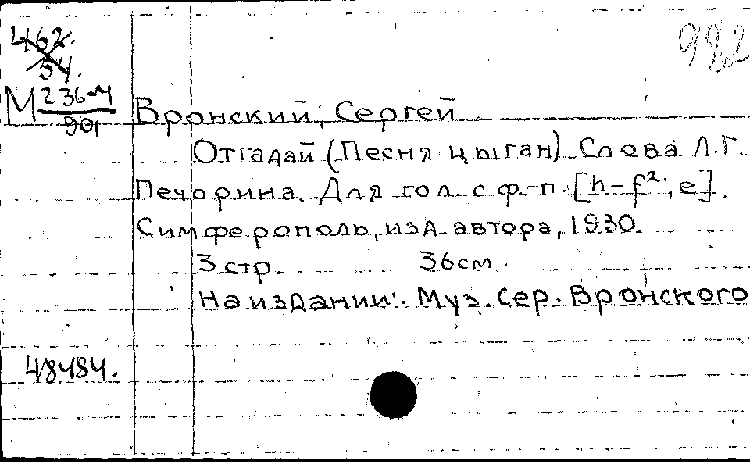 462.
54.
982
М 236-4
901
Вронский, Сергей
Отгадай (Песня цыган). Слова Л.Г.
Печорина. Для гол. с ф-п. [h-f², e].
Симферополь, изд. автора, 1930.
3 стр. 36 см.
На издании: Муз. Сер. Вронского
48484.